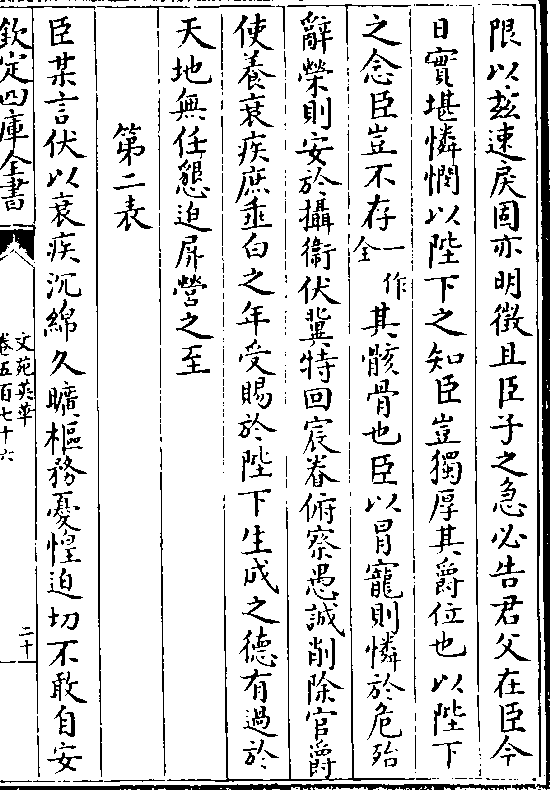 限以玆速戾固亦明徵且臣子之急必告君父在臣今
日實堪憐憫以陛下之知臣豈獨厚其爵位也以陛下
之念臣豈不存一作全其骸骨也臣以冒寵則憐於危殆
辭榮則安於攝衛伏冀特回宸眷俯察愚誠削除官爵
使養衰疾庶垂白之年受賜於陛下生成之德有過於
天地無任懇迫屏營之至
第二表
臣某言伏以衰疾沉綿久曠樞務憂惶迫切不敢自安
欽定四庫全書
文苑英華
卷五百七十六
二十